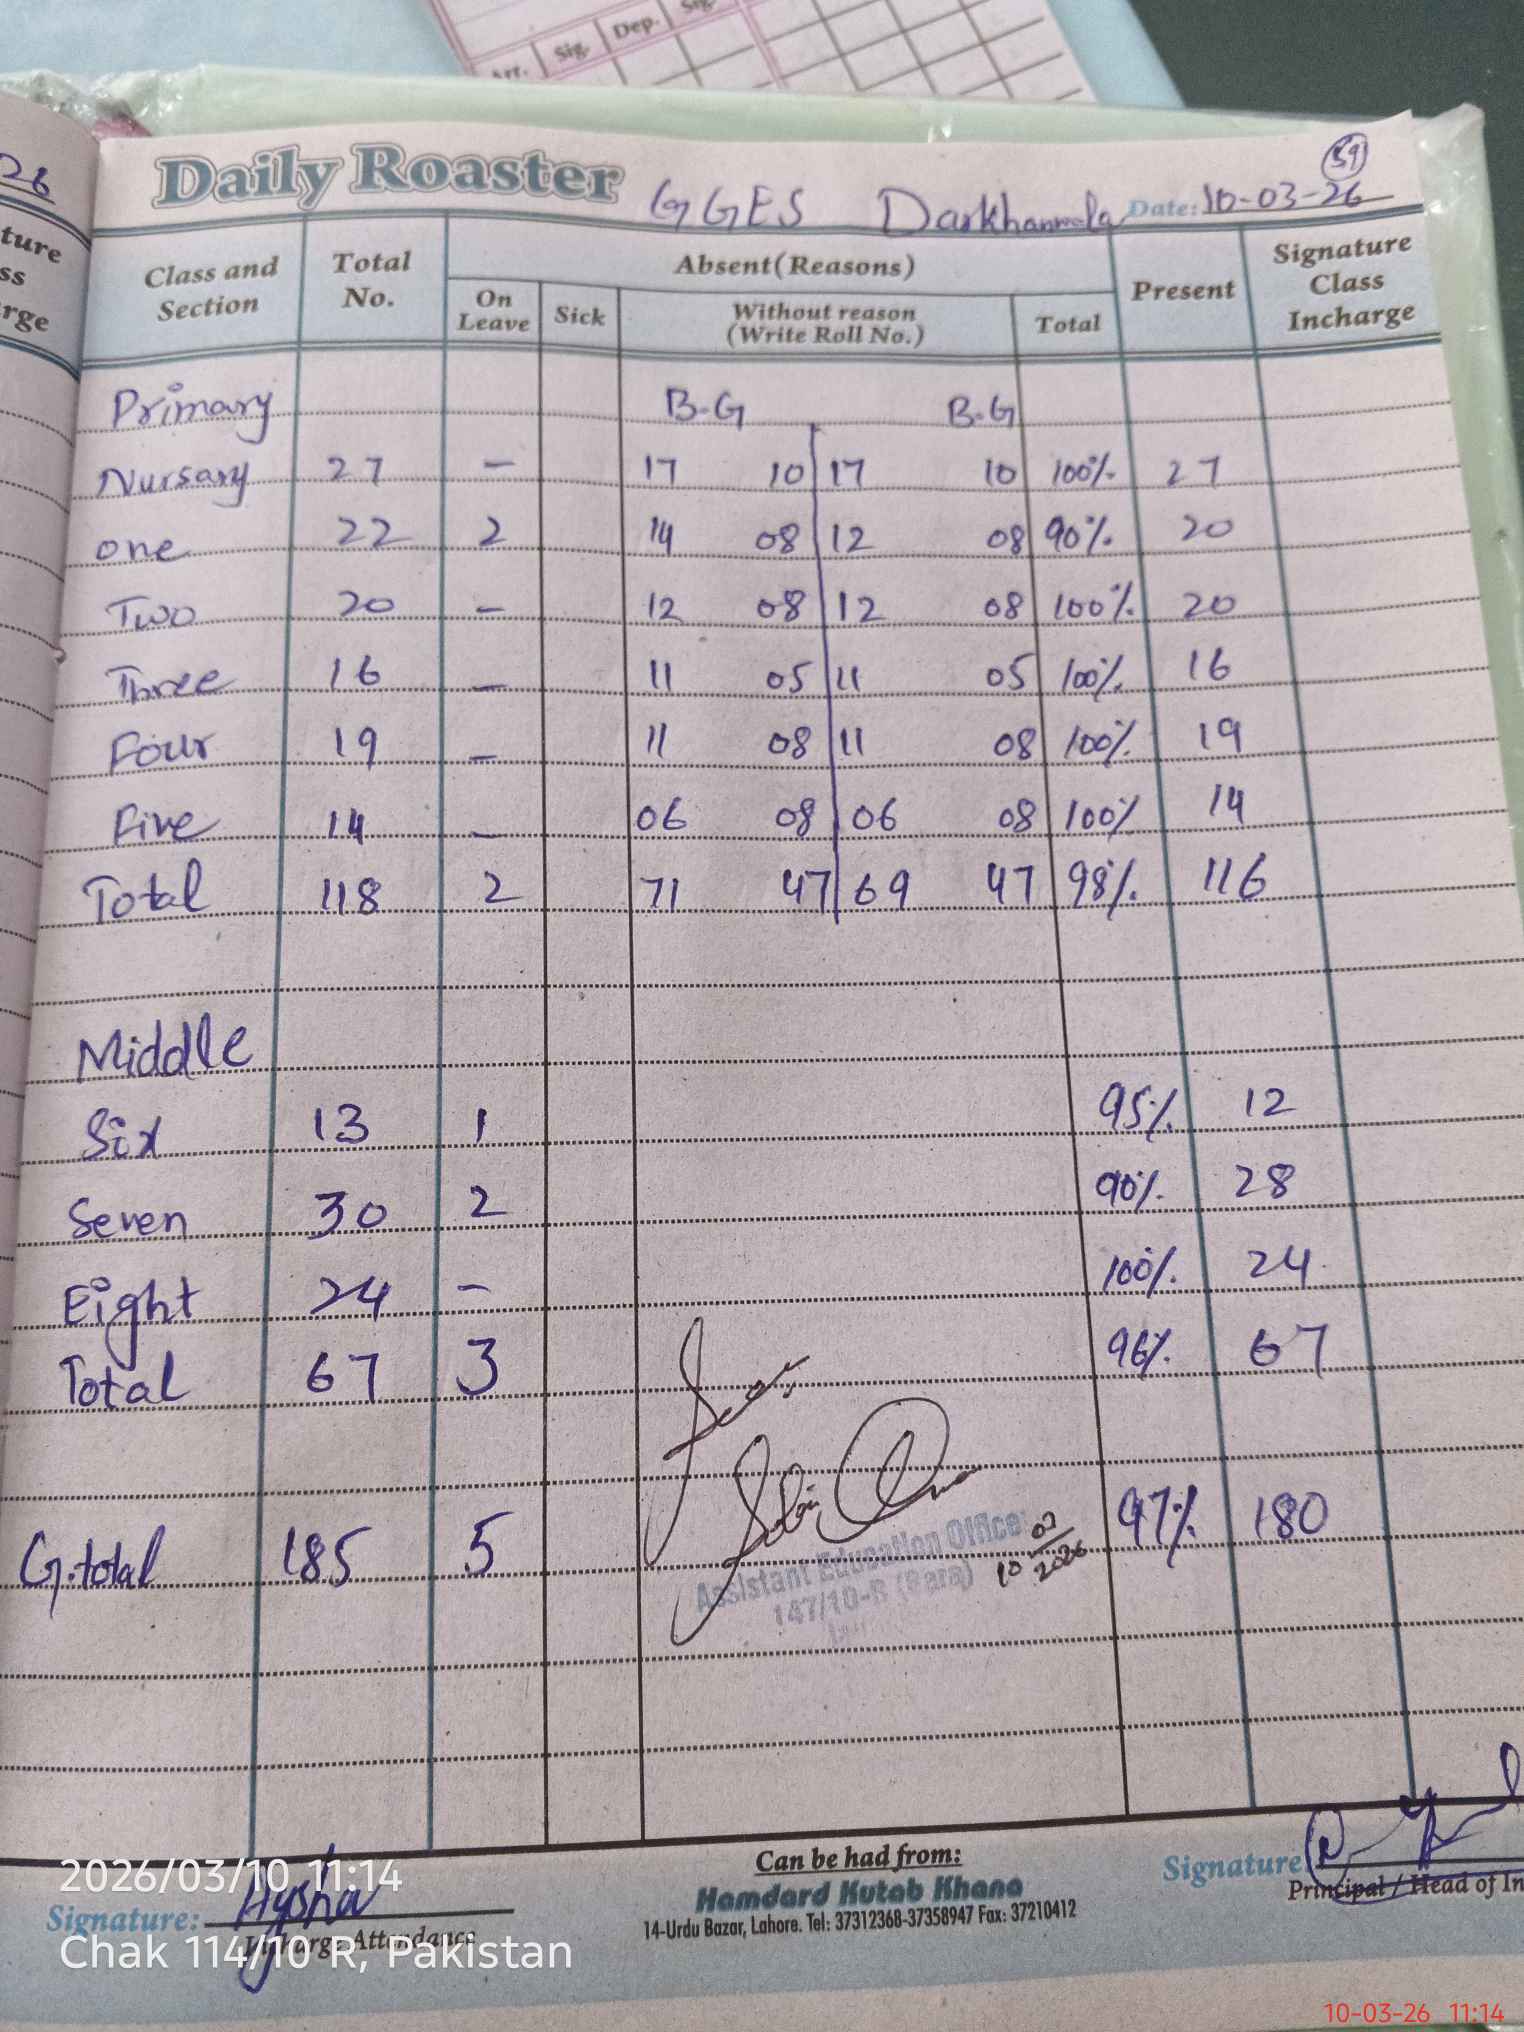 Arr. Sig. Dep. Sig.
26
Daily Roaster
59
GGES Darkhanwala Date: 10-03-26
ture
ss
rge
Class and Section Total No. Absent(Reasons) Present Signature Class Incharge
On Leave Sick Without reason (Write Roll No.) Total
Primary B-G B-G
Nursary 27 – 17 10 17 10 100% 27
one 22 2 14 08 12 08 90% 20
Two 20 – 12 08 12 08 100% 20
Three 16 – 11 05 11 05 100% 16
Four 19 – 11 08 11 08 100% 19
Five 14 – 06 08 06 08 100% 14
Total 118 2 71 47 69 47 98% 116
Middle
Six 13 1 95% 12
Seven 30 2 90% 28
Eight 24 – 100% 24
Total 67 3 96% 67
G.total 185 5 97% 180
Assistant Education Officer
147/10-R
10 03 2026
Can be had from:
Hamdard Kutab Khana
14-Urdu Bazar, Lahore. Tel: 37312368-37358947 Fax: 37210412
Signature: Aysha
Incharge Attendance
Signature
Principal / Head of In
2026/03/10 11:14
Chak 114/10 R, Pakistan
10-03-26 11:14